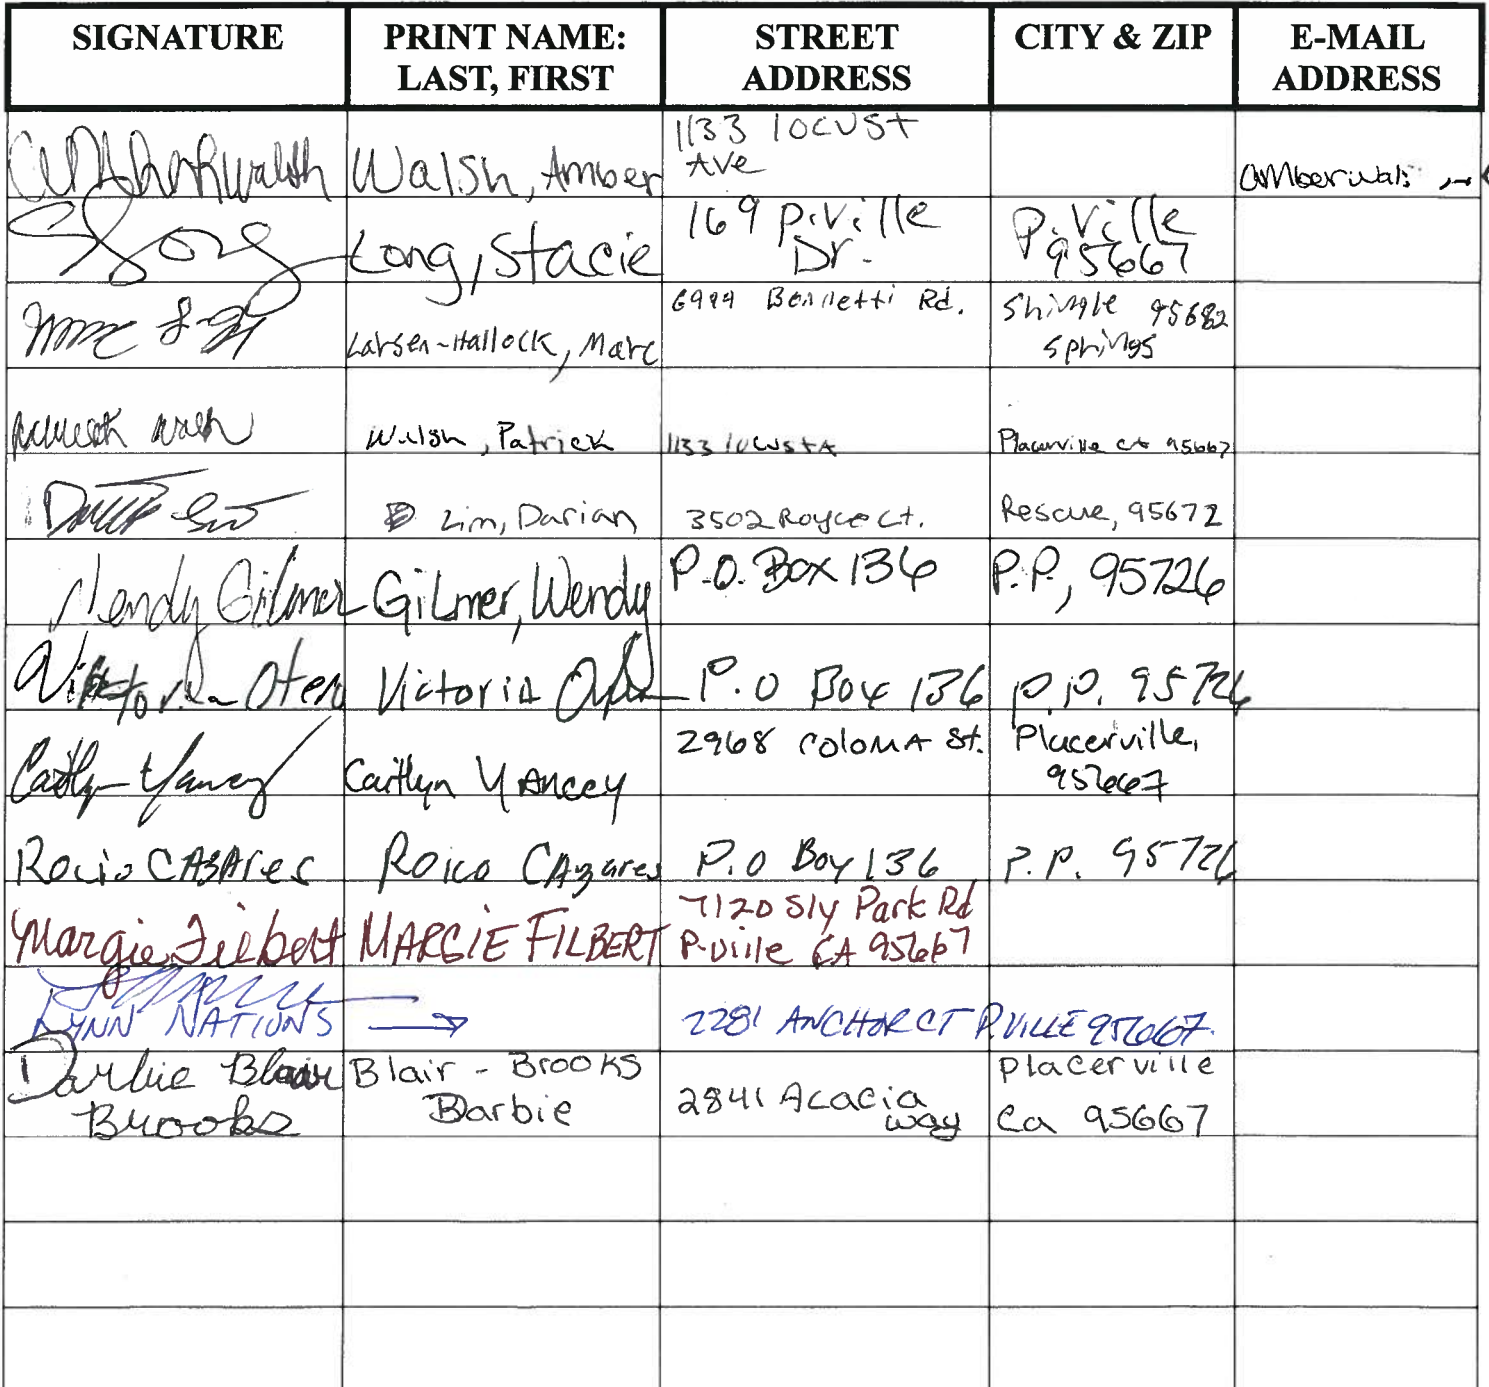 SIGNATURE
PRINT NAME:
LAST, FIRST
STREET
ADDRESS
CITY & ZIP
E-MAIL
ADDRESS
Walsh, Amber
1133 locust
Ave
Long, Stacie
169 P.Ville
Dr.
P.Ville
95667
Larsen-Hallock, Marc
Rd.
Shingle 95682
Springs
Walsh, Patrick
1133 locust A
Placerville CA 95667
Lim, Darian
3502 Royce Ct.
Rescue, 95672
Wendy Gilmer
Gilmer, Wendy
P.O. Box 136
P.P, 95726
Victoria Otero
Victoria
P.O Box 136
P.P. 95726
Caitlyn Yancey
Caitlyn YAncey
2968 COLOMA St.
Placerville,
95667
Rocio CAZAres
Roico CAzares
P.O Box 136
P.P. 95726
Margie Filbert
MARGIE FILBERT
7120 Sly Park Rd
P-ville CA 95667
LYNN NATIONS
2281 ANCHOR CT P.VILLE 95667.
Barbie Blair
Brooks
Blair - Brooks
Barbie
2841 Acacia
way
Placerville
Ca 95667